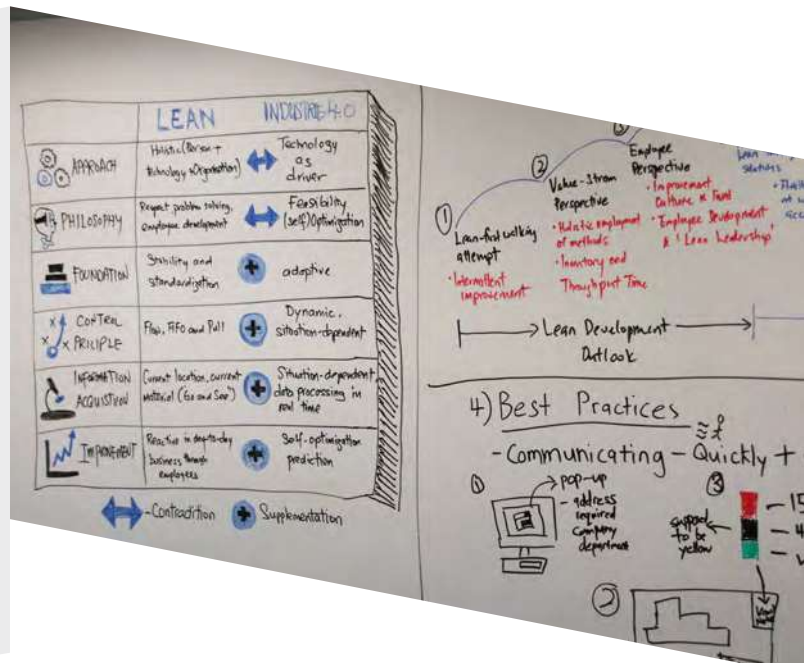 LEAN
INDUSTRIE 4.0
APPROACH
Holistic (Person +
technology + Organisation)
Technology
as
driver
PHILOSOPHY
Respect problem solving,
employee development
Feasibility
(self) Optimization
FOUNDATION
Stability and
standardization
adaptive
CONTROL
PRICIPLE
Flow, FiFo and Pull
Dynamic,
situation-dependent
INFORMATION
ACQUISTION
Current location, current
material ("Go and See")
Situation-dependent
data processing in
real time
IMPROVEMENT
Reactive in day-to-day
business through
employees
Self-optimization
prediction
- Contradiction
Supplementation
①
Lean-first walking
attempt
• Intermittent
improvement
②
Value-Stream
Perspective
• Holistic employment
of methods
• Inventory and
Throughput Time
③
Employee
Perspective
• Improvement
Culture
• Employee Development
& 'Lean Leadership'
Lean
Lean Development
Outlook
4) Best Practices
- Communicating - Quickly +
①
pop-up
- address
required
Company
department
③
support
to be
yellow
②